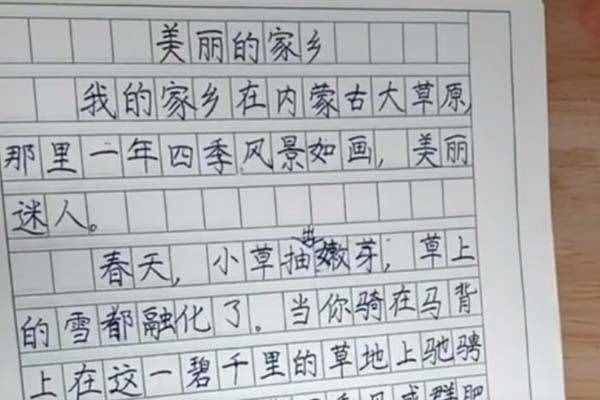 美丽的家乡
我的家乡在内蒙古大草原,
那里一年四季风景如画,美丽
迷人。
春天,小草抽出嫩芽,草上
的雪都融化了。当你骑在马背
上在这一碧千里的草地上驰骋
成群肥